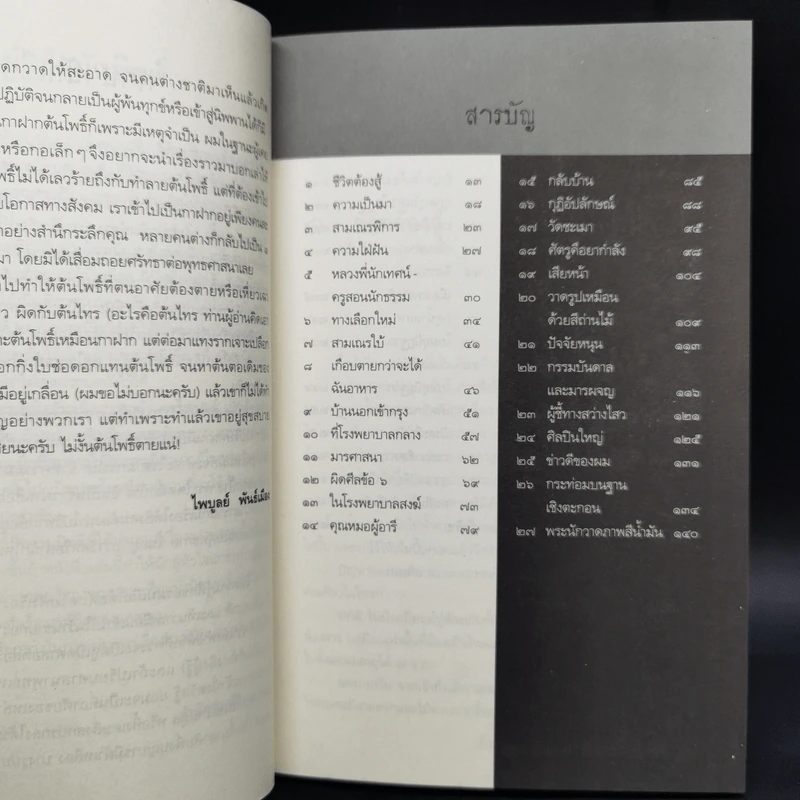 ดกวาดให้สะอาด จนคนต่างชาติมาเห็นแล้ว
ปฏิบัติจนกลายเป็นผู้พ้นทุกข์หรือเข้าสู่นิพพานได้
กาฝากต้นโพธิ์ก็เพราะมีเหตุจำเป็น ผมในฐานะ
หรือกอเล็กๆ จึงอยากจะนำเรื่องราวมาบอกเล่าให้
พธิ์ไม่ได้เลวร้ายถึงกับทำลายต้นโพธิ์ แต่ที่ต้องเข้าไป
โอกาสทางสังคม เราเข้าไปเป็นกาฝากอยู่เพียง
อย่างสำนึกระลึกคุณ หลายคนต่างก็กลับไปเป็น
มา โดยมิได้เสื่อมถอยศรัทธาต่อพุทธศาสนาเลย
ไปทำให้ต้นโพธิ์ที่ตนอาศัยต้องตายหรือเหี่ยวเฉา
ว ผิดกับต้นไทร (อะไรคือต้นไทร ท่านผู้อ่านคิดเอา
ะต้นโพธิ์เหมือนกาฝาก แต่ต่อมาแทงรากเจาะเปลือก
อกกิ่งใบช่อดอกแทนต้นโพธิ์ จนหาต้นตอเดิม
มีอยู่เกลื่อน (ผมขอไม่บอกนะครับ) แล้วเขาก็ไม่ได้ทำ
ญอย่างพวกเรา แต่ทำเพราะทำแล้วเขาอยู่สุขสบาย
ยนะครับ ไม่งั้นต้นโพธิ์ตายแน่!
ไพบูลย์ พันธ์เมือง
สารบัญ
๑ ชีวิตต้องสู้ ๑๓
๒ ความเป็นมา ๑๘
๓ สามเณรพิการ ๒๓
๔ ความใฝ่ฝัน ๒๗
๕ หลวงพี่นักเทศน์ -
ครูสอนนักธรรม ๓๐
๖ ทางเลือกใหม่ ๓๔
๗ สามเณรใบ้ ๔๑
๘ เกือบตายกว่าจะได้
ฉันอาหาร ๔๖
๙ บ้านนอกเข้ากรุง ๕๑
๑๐ ที่โรงพยาบาลกลาง ๕๗
๑๑ มารศาสนา ๖๒
๑๒ ผิดศีลข้อ ๖ ๖๙
๑๓ ในโรงพยาบาลสงฆ์ ๗๓
๑๔ คุณหมอผู้อารี ๗๙
๑๕ กลับบ้าน ๘๕
๑๖ กุฏิอัปลักษณ์ ๘๘
๑๗ วัดชะเมา ๙๕
๑๘ ศัตรูคือยากำลัง ๙๘
๑๙ เสียหน้า ๑๐๔
๒๐ วาดรูปเหมือน
ด้วยสีถ่านไม้ ๑๐๙
๒๑ ปัจจัยหนุน ๑๑๓
๒๒ กรรมบันดาล
และมารผจญ ๑๑๖
๒๓ ผู้ชี้ทางสว่างไสว ๑๒๑
๒๔ ศิลปินใหญ่ ๑๒๕
๒๕ ข่าวดีของผม ๑๓๑
๒๖ กระท่อมบนฐาน
เชิงตะกอน ๑๓๔
๒๗ พระนักวาดภาพสีน้ำมัน ๑๔๐